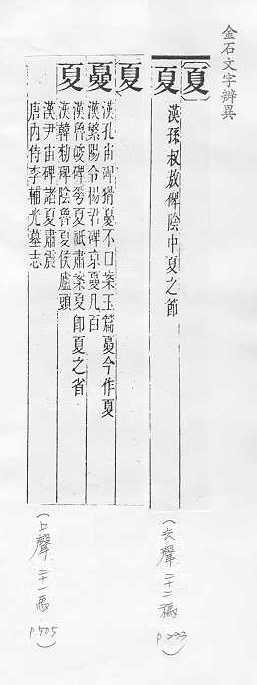 金石文字辨異
【夏】
夏 漢孫叔敖碑陰中夏之節
(去聲 二十二禡 P.233)
夏
漢孔宙碑猾夓不口案玉篇夓今作夏
夓 漢繁陽令楊君碑京夓凡百
漢魯峻碑 夏祇肅案夏即夏之省
夏 漢韓勑碑陰魯夏侯廬頭
漢尹宙碑諸夏肅震
唐內侍李輔光墓志
(上聲 二十一馬 P.505)